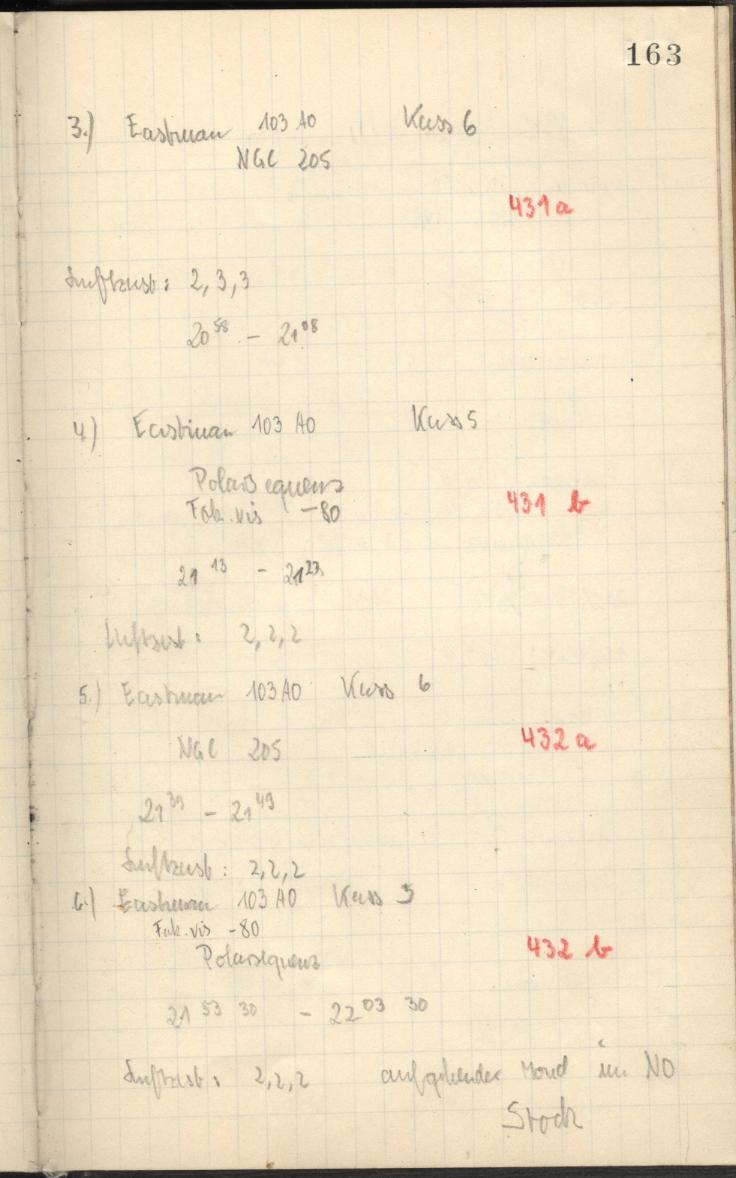 163
3.) Eastman 103 AO Kass 6
NGC 205
431 a
Luftzust: 2, 3, 3
20 58 – 21 08
4) Eastman 103 AO Kass 5
Polarsequenz
Fok. vis –80
431 b
21 13 – 21 23
Luftzust: 2, 2, 2
5.) Eastman 103 AO Kass 6
NGC 205
432 a
21 39 – 21 49
Luftzust: 2, 2, 2
6.) Eastman 103 AO Kass 5
Fok. vis –80
Polarsequenz
432 b
21 53 30 – 22 03 30
Luftzust: 2, 2, 2 aufgehender Mond im NO
Stock